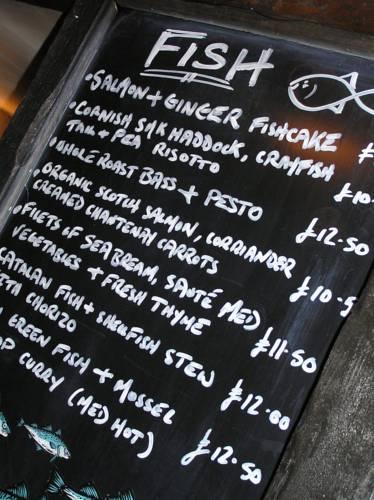 FISH
• SALMON + GINGER FISHCAKE £
• CORNISH SMK HADDOCK, CRAYFISH
TAIL + PEA RISOTTO £10.
• WHOLE ROAST BASS + PESTO £12.50
• ORGANIC SCOTCH SALMON, CORRIANDER
CREAMED CHANTENAY CARROTS £10.5
• FILETS OF SEABREAM, SAUTÉ MED
VEGETABLES + FRESH THYME £11.50
CATALAN FISH + SHELLFISH STEW
ETA CHORIZO £12.00
GREEN FISH + MUSSEL
CURRY (MED HOT) £12.50